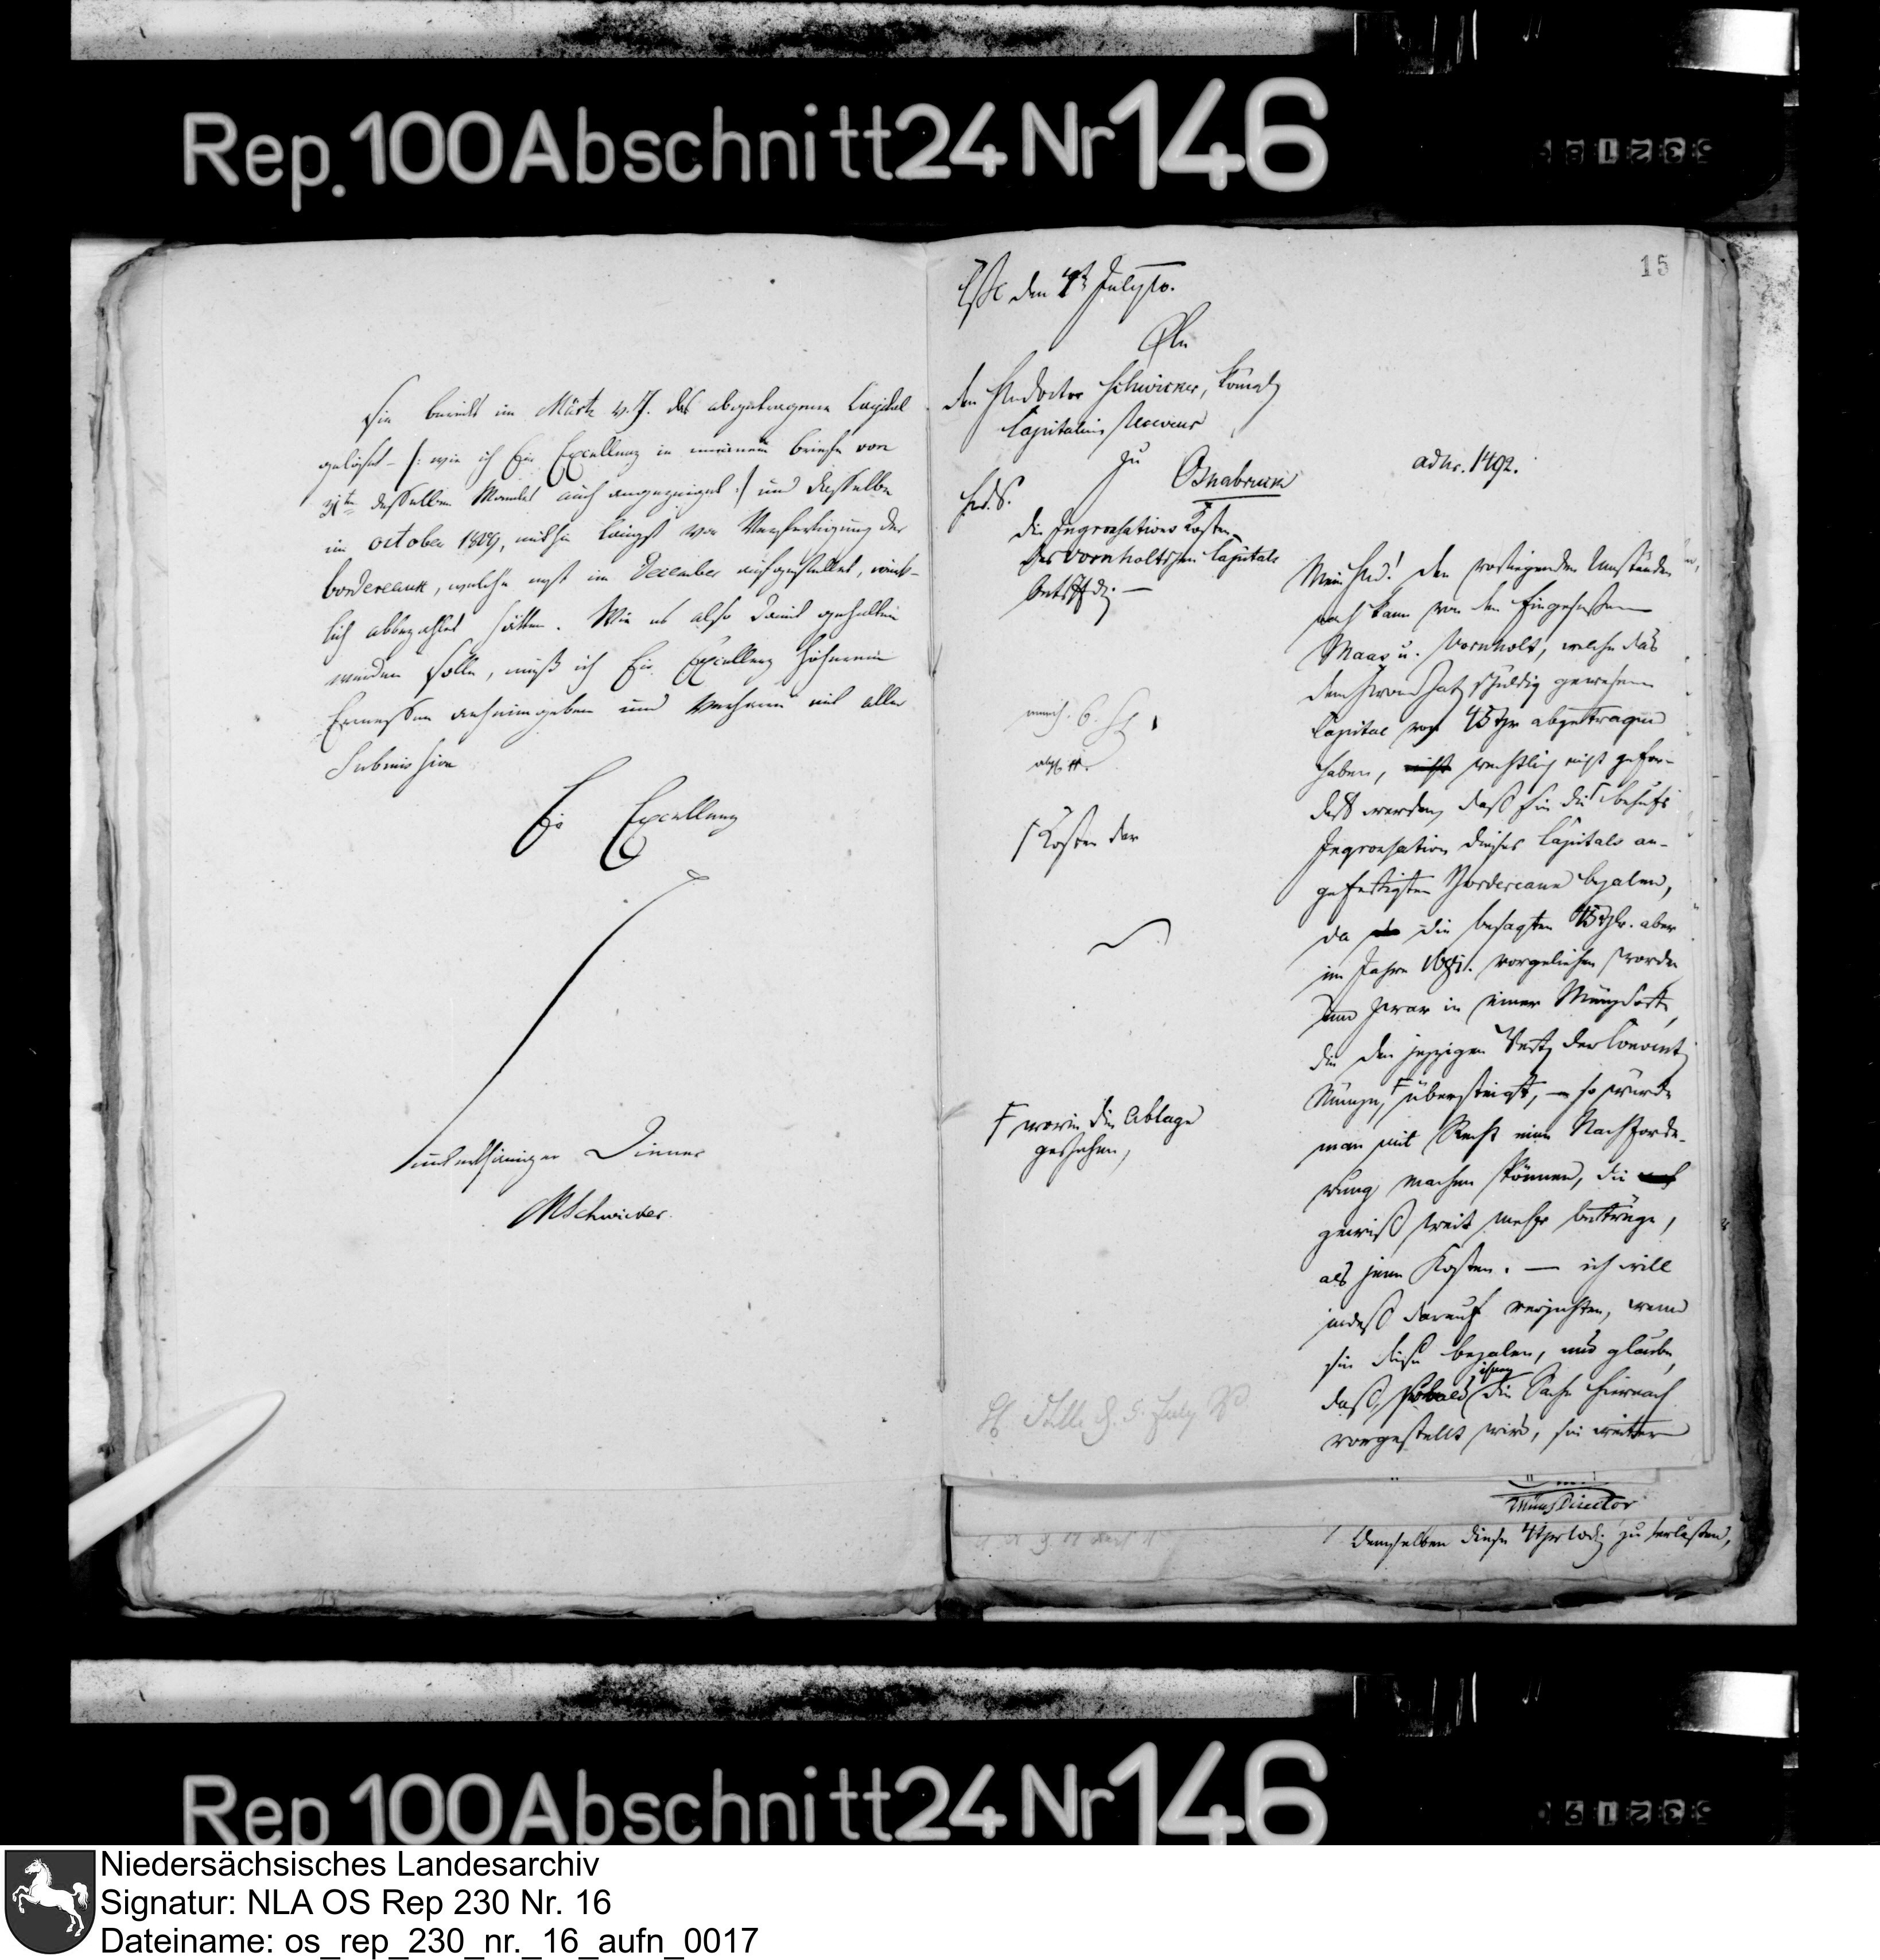 Rep. 100 Abschnitt 24 Nr 146
Sie bereits im Märtz v. J. das abgetragene Capital
gelöset – /: wie ich Ew Excellenz in meinem Briefe vom
31ten desselben Monats auch angezeiget :/ und dasselbe
im october 1809, mithin längst vor Verfertigung der
bordereaux, welche erst im December aufgestellet, würk-
lich abbezahlet hätten. Wie es also damit gehalten
werden solle, muß ich Ew Excellenz höherem
Ermessen anheimgeben und verharre mit aller
Submission
Ew Excellenz
unterthäniger Diener
Schwicker
15
den 4t July 10.
An
den H Doctor Schwicker,
Capitalien Receveur
zu
Osnabruck
adNr. 1492.
die Ingrossations Kosten
des Vornholtschen Capitals
Mein Herr! Den vorliegenden Umständen
nach kann von den Eingesessenen
Maas u. Vornholt, welche das
schuldig gewesene
Capital von 45 thr abgetragen
haben, rechtlich nicht gefor-
dert werden, daß sie die behufs
Ingrossation dieses Capitals an-
gefertigten Bordereaux bezalen,
da die besagten 45 thr. aber
im Jahre vorgeliehen worden
und zwar in einer Münzsorte,
die den jezzigen Werth der
Münze, F übersteigt, – so würde
man mit Recht eine Nachforde-
rung machen können, die
gewiß weit mehr betrüge,
als jene Kosten. — ich will
indeß darauf verzichten, wenn
sie diese bezalen, und glaube,
daß, sobald ihnen die Sache hiernach
vorgestellt wird, sie weiter
Kosten der
F worin die Ablage
geschehen,
5. July
Münz Director
demselben diese 4 thr zu erlassen,
Rep 100 Abschnitt 24 Nr 146
Niedersächsisches Landesarchiv
Signatur: NLA OS Rep 230 Nr. 16
Dateiname: os_rep_230_nr._16_aufn_0017